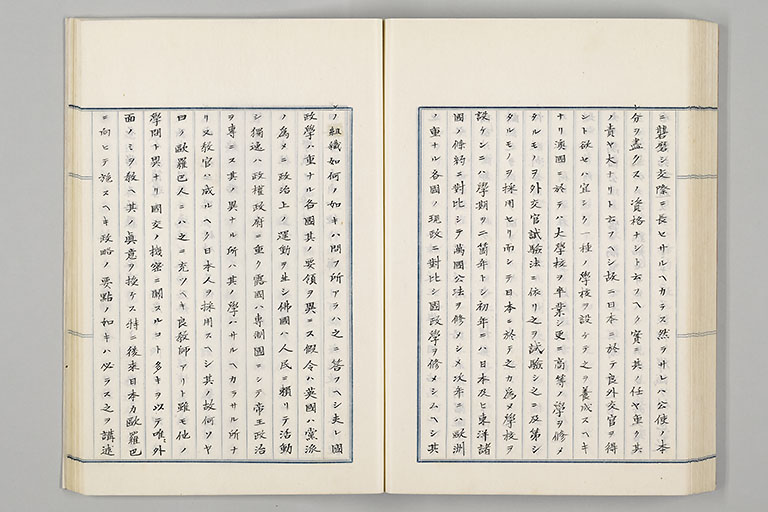 ニ磬磨シ交際ニ長ヒサルヘカラス然ラサレハ公使ノ本
分ヲ盡クスノ資格ナシト云フヘク實ニ其ノ任ヤ重ク其
ノ責ヤ大ナリト云フヘシ故ニ日本ニ於テ良外交官ヲ得
ント欲セハ宜シク一種ノ學校ヲ設ケテ之ヲ養成スヘキ
ナリ澳國ニ於テハ大學校ヲ卒業シ更ニ高等ノ學ヲ修メ
タルモノヲ外交官試驗法ニ依リ之ヲ試驗シ之ニ及第シ
タルモノヲ採用セリ而シテ日本ニ於テ之カ爲メ學校ヲ
設ケンニハ學期ヲ二箇年トシ初年ニハ日本及ヒ東洋諸
國ノ條約ニ對比シテ萬國公法ヲ修メシメ次年ニハ歐洲
ノ重ナル各國ノ現政ニ對比シ國政學ヲ修メシムヘシ其
ノ組織如何ノ如キハ問フ所アラハ之ニ答フヘシ夫レ國
政學ハ重ナル各國其ノ要領ヲ異ニス假令ハ英國ハ黨派
ノ爲メニ政治上ノ運動ヲ生シ佛國ハ人民ニ賴リテ活動
シ獨逸ハ政權政府ニ重ク露國ハ專制國ニシテ帝王政治
ヲ專ニス其ノ異ナル所ハ其ノ學ハサルヘカラサル所ナ
リ又敎官ハ成ルヘク日本人ヲ採用スヘシ其ノ故何ソヤ
曰ク歐羅巴人ニハ之ニ充ツヘキ良敎師アリト雖モ他ノ
學問ト異ナリ國交ノ機密ニ關スルコト多キヲ以テ唯外
面ノミヲ敎ヘ其ノ眞意ヲ授ケス特ニ後來日本カ歐羅巴
ニ向ヒテ施スヘキ政略ノ要點ノ如キハ必ラス之ヲ講述